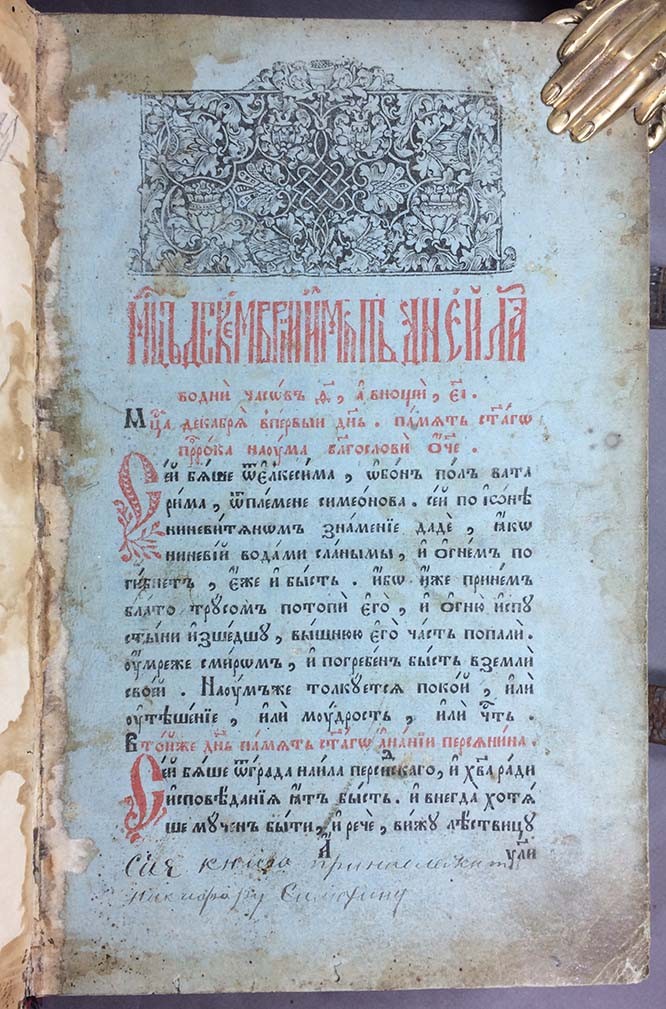 Мц҃ъ декемврїи и҆мать дн҃ей л҃а
во дни часѡвъ ѳ҃, а҆ внощи, є҃і.
Мц҃а декабря в первый дн҃ь. память ст҃агѡ
прⷪ҇рока наѹма благослови ѻ҆́ч҃е.
Сей бяше ѿ є҆лкесима, ѡ҆бонъ полъ вата
рима, ѿ племене симеѡнова. сей по і҆ѡ́нѣ
ниневитяномъ знаменїе дадѐ, ꙗ҆́кѡ
ниневїй водами сланымы, и҆ ѻ҆гне́мъ по
гибнетъ, є҆́же и҆ бысть. и҆́бѡ и҆́же прїнемъ
блато трусомъ потопѝ є҆го̀, и҆ ѻ҆гню̀ и҆спу
стыни и҆зшедшу, вышнюю є҆го̀ часть попалѝ.
ѹ҆́мреже смиромъ, и҆ погребенъ бысть в землѝ
своей. Наѹмъже толкуется поко́й, и҆лѝ
ѹ҆тѣшенїе, и҆лѝ мѹдрость, и҆лѝ чⷭ҇ть.
В то́йже дн҃ь память ст҃агѡ а҆на́нїи персянина.
Сей бяше ѿ града наила персиⷣскаго, и҆ хв҃а ради
и҆сповѣданїя ꙗ҆тъ бысть. и҆ внегда хотя
ше мученъ бы́ти, и҆ рече̂, вижу лѣствицу
а҃ ѹгли
Сия книга принадлежитъ
Никифору Симохину